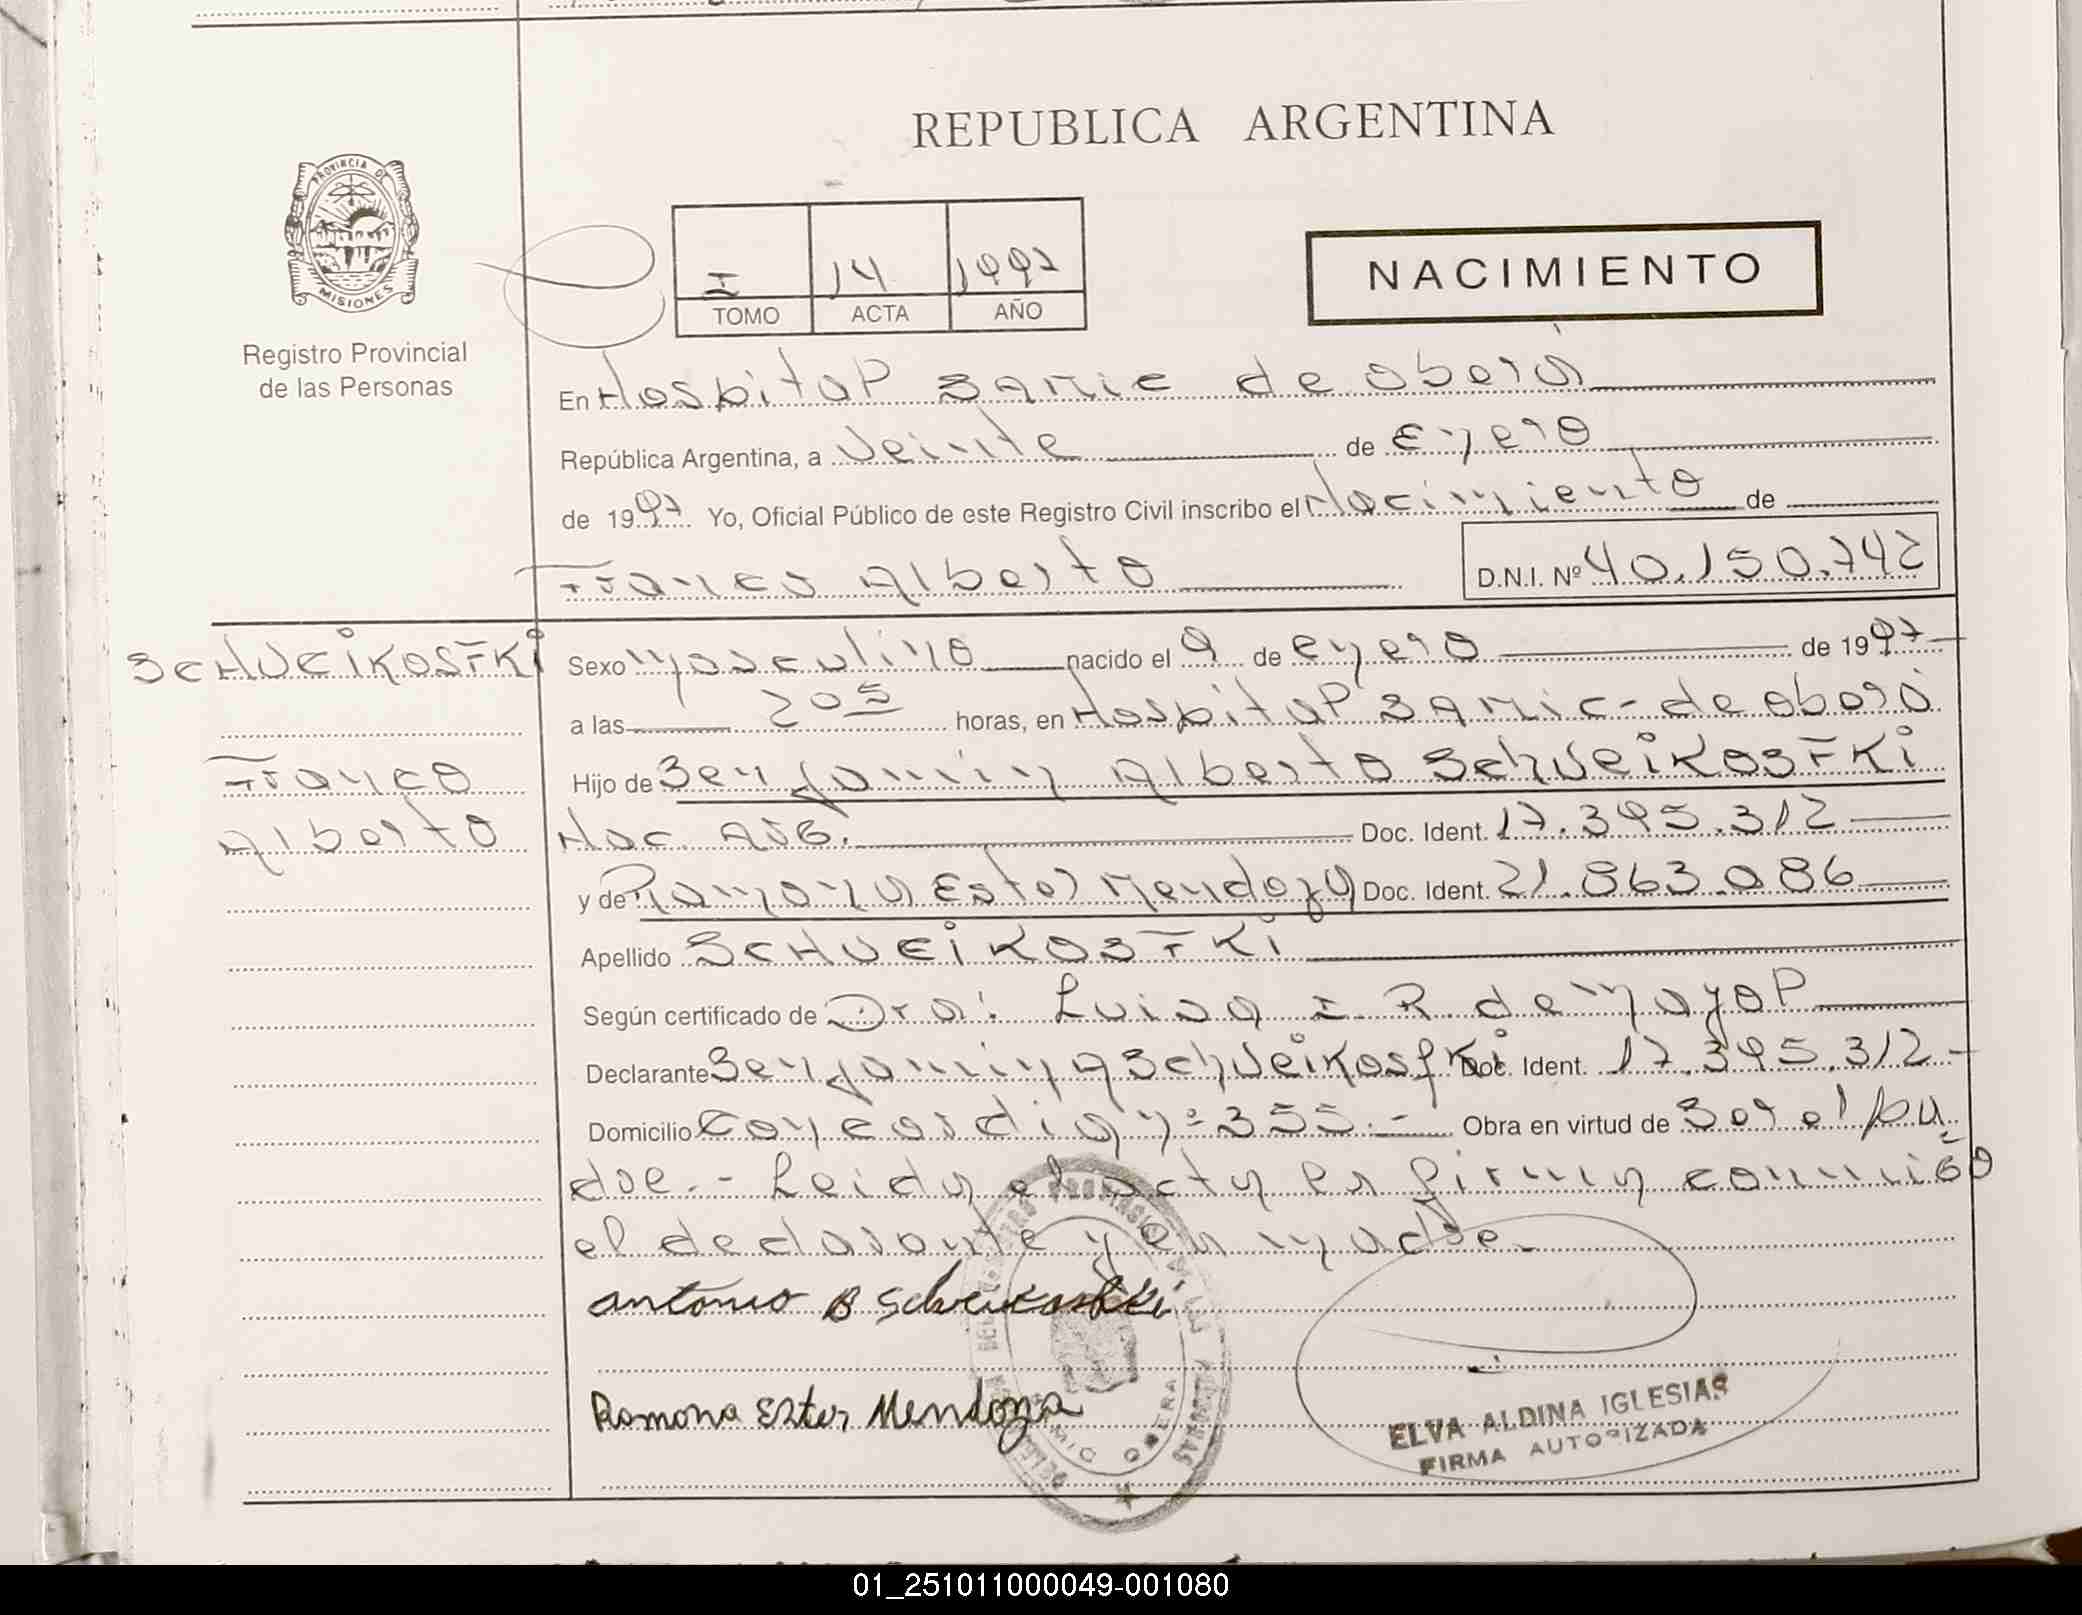 REPUBLICA ARGENTINA
PROVINCIA DE
MISIONES
Registro Provincial
de las Personas
I 14 1997
TOMO ACTA AÑO
NACIMIENTO
En Hospital SAMIC de oberá
República Argentina, a Veinte de Enero
de 1997 Yo, Oficial Público de este Registro Civil inscribo el Nacimiento de
Franco Alberto D.N.I. Nº 40.150.742
SCHVEIKOSFKI
Franco
Alberto
Sexo masculino nacido el 9 de enero de 1997
a las 205 horas, en Hospital SAMIC - de oberá
Hijo de Benjamin Alberto SchVeiKosFKi
Nac. ARG. Doc. Ident. 17.395.312
y de Ramona Ester Mendoza Doc. Ident. 21.863.086
Apellido SCHVEiKOSFKi
Según certificado de Dra: Luisa I. R. de mayol
Declarante Benjamin A SchVeiKosfKi Doc. Ident. 17.395.312.-
Domicilio Concordia nº 355.- Obra en virtud de Ser el pa
dre.- Leida el acta la firman conmigo
el declarante y la madre.-
antonio B Schveikosfki
Ramona Ester Mendoza
ELVA ALDINA IGLESIAS
FIRMA AUTORIZADA
01_251011000049-001080